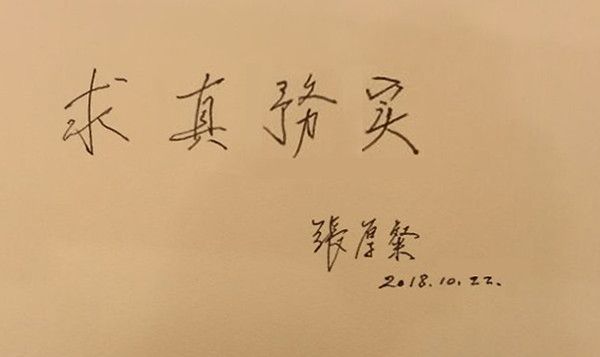 求真務实
張厚粲
2018.10.22.